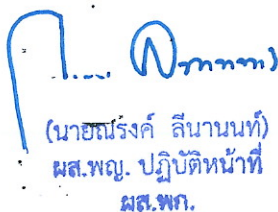 (นายณรงค์ ลีนานนท์)
ผส.พญ. ปฏิบัติหน้าที่
ผส.พก.